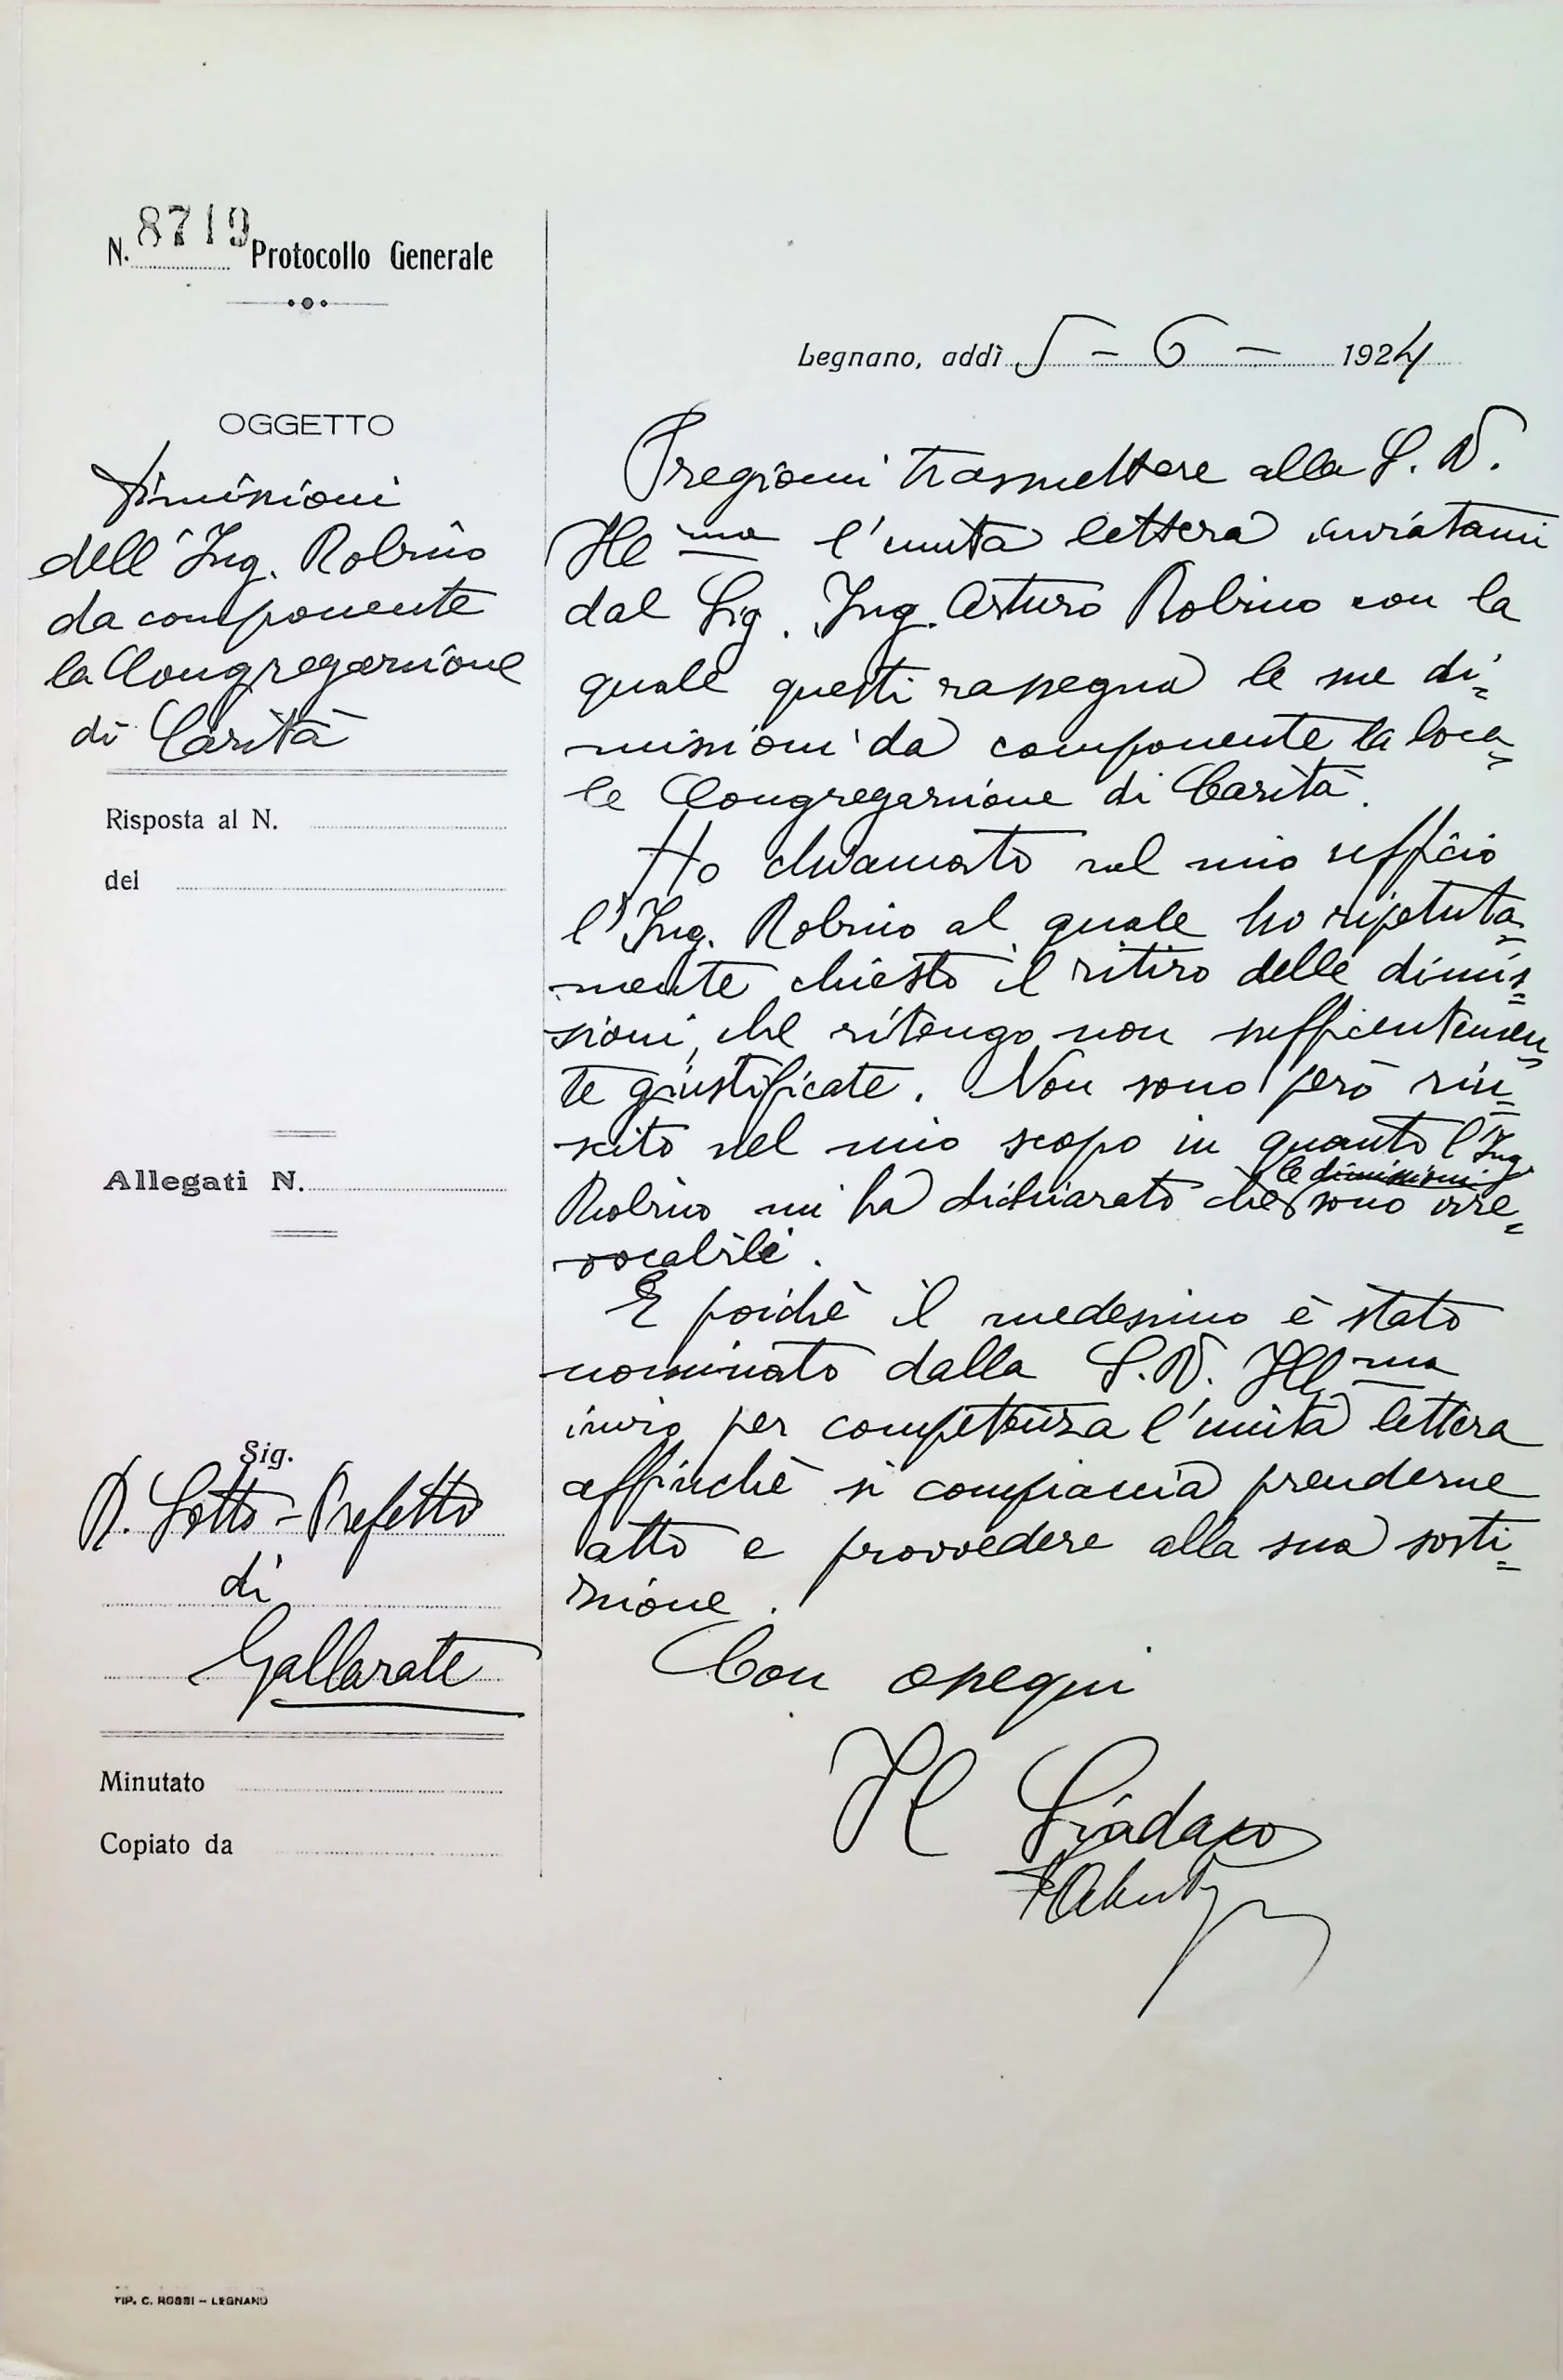 N. 8719 Protocollo Generale
OGGETTO
Dimissioni
dell'Ing. Robino
da componente
la Congregazione
di Carità
Risposta al N.
del
Allegati N.
Sig.
R. Sotto-Prefetto
di
Gallarate
Minutato
Copiato da
TIP. C. ROSSI – LEGNANO
Legnano, addì 5 - 6 - 1924
Pregiomi trasmettere alla S. V.
Ill ma l'unita lettera inviatami
dal Sig. Ing. Arturo Robino con la
quale questi rassegna le sue di=
missioni da componente la loca=
le Congregazione di Carità.
Ho chiamato nel mio ufficio
l'Ing. Robino al quale ho ripetuta=
mente chiesto il ritiro delle dimis=
sioni, che ritengo non sufficientemen=
te giustificate. Non sono però riu=
scito nel mio scopo in quanto l'Ing.
Robino mi ha dichiarato che le dimissioni sono irre=
vocabili.
E poichè il medesimo è stato
nominato dalla S. V. Ill ma
invio per competenza l'unita lettera
affinchè si compiacia prenderne
atto e provvedere alla sua sosti=
zione.
Con ossequi
Il Sindaco